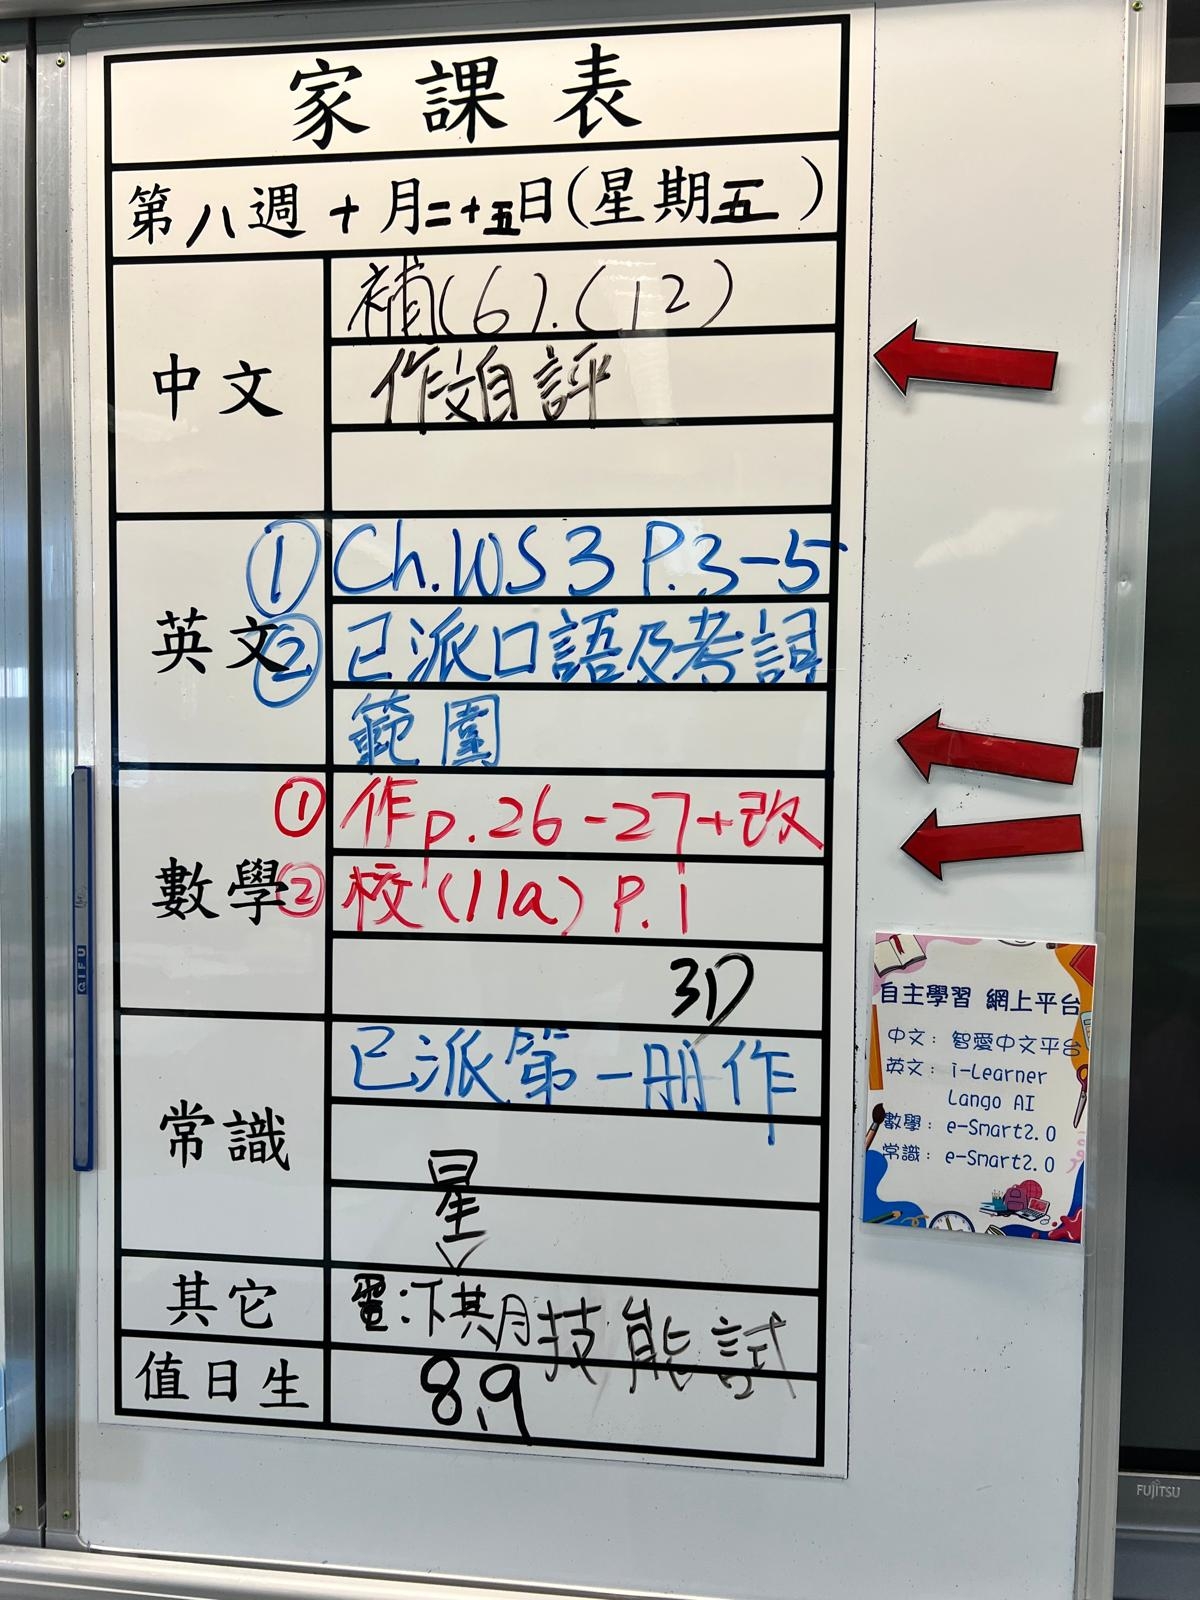 家課表
第八週 十月二十五日(星期五)
中文
補(6).(12)
作文自評
英文
① Ch.WS 3 P.3-5
② 已派口語及考詞
範圍
數學
① 作p.26-27+改
② 校(11a) P.1
3D
常識
已派第一冊作
星
其它
電:下期月技能試
值日生
8,9
自主學習 網上平台
中文: 智愛中文平台
英文: i-Learner
Lango AI
數學: e-Smart2.0
常識: e-Smart2.0
QIFU
FUJITSU